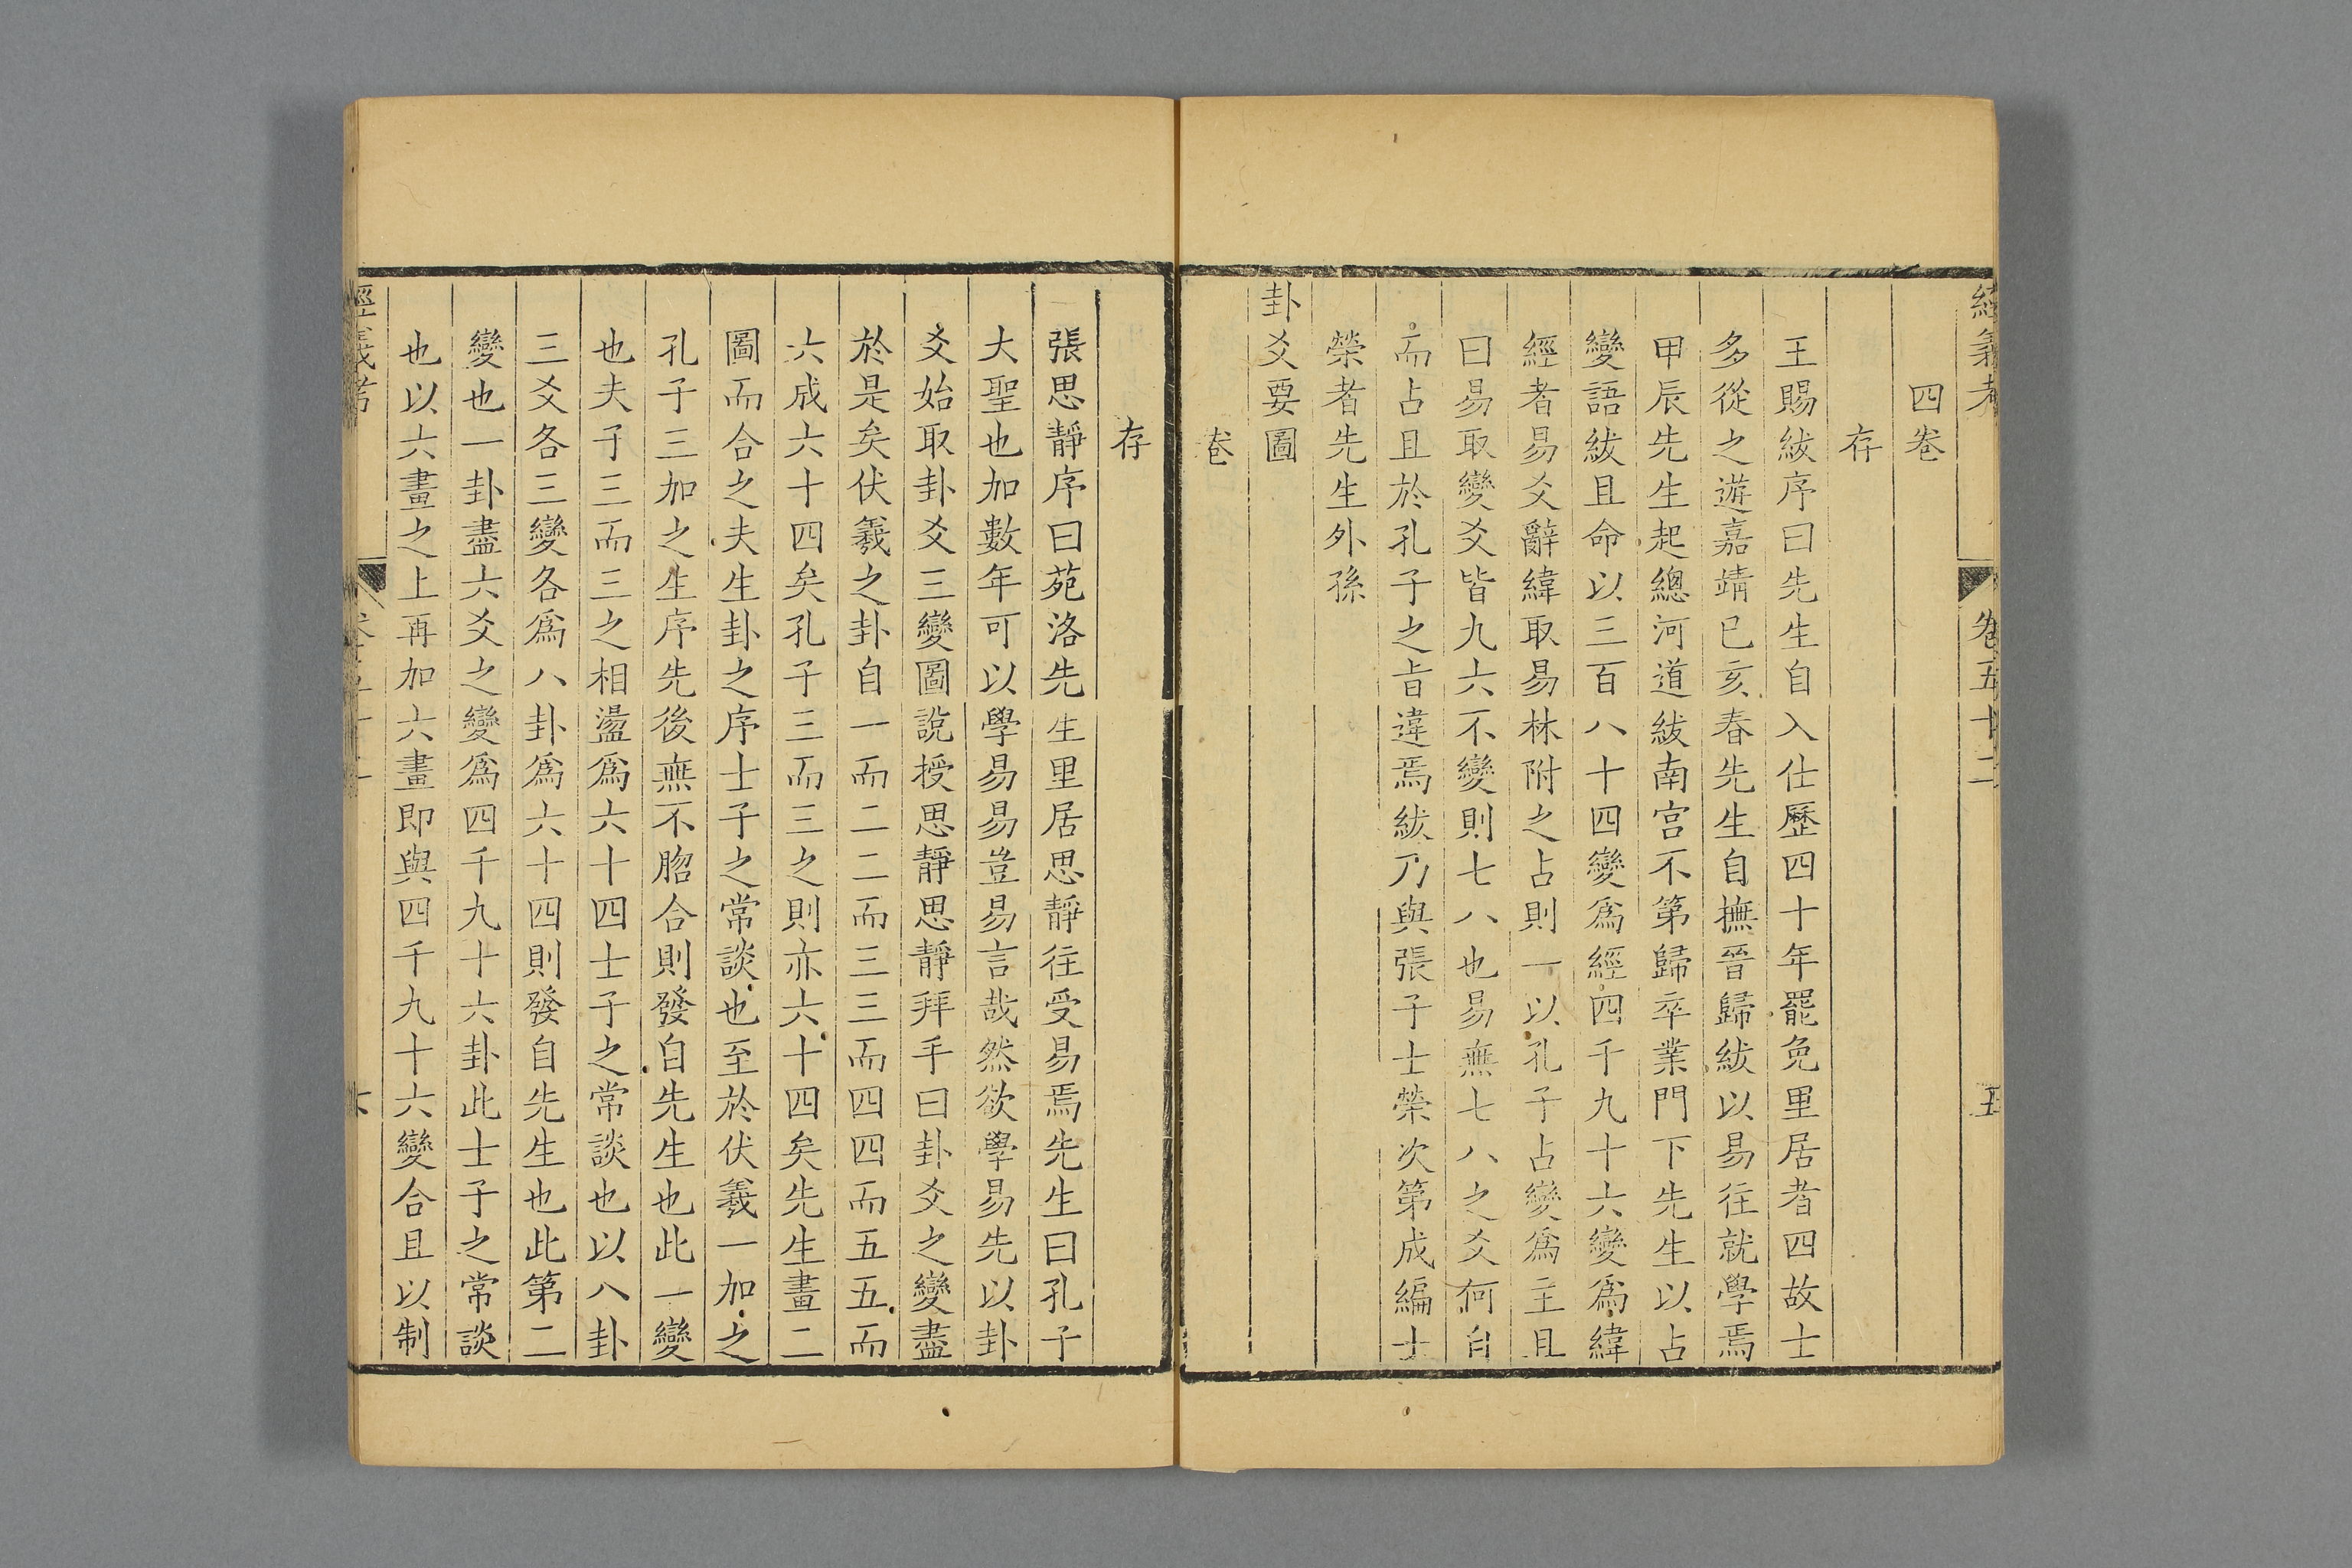 經義考 卷五十二 五
四卷
存
王賜紱序曰先生自入仕歷四十年罷免里居者四故士
多從之遊嘉靖已亥春先生自撫晉歸紱以易往就學焉
甲辰先生起總河道紱南宮不第歸卒業門下先生以占
變語紱且命以三百八十四變爲經四千九十六變爲緯
經者易爻辭緯取易林附之占則一以孔子占變爲主且
曰易取變爻皆九六不變則七八也易無七八之爻何自
而占且於孔子之旨違焉紱乃與張子士榮次第成編士
榮者先生外孫
卦爻要圖
卷
存
張思靜序曰苑洛先生里居思靜往受易焉先生曰孔子
大聖也加數年可以學易易豈易言哉然欲學易先以卦
爻始取卦爻三變圖說授思靜思靜拜手曰卦爻之變盡
於是矣伏羲之卦自一而二二而三三而四四而五五而
六成六十四矣孔子三而三之則亦六十四矣先生畫二
圖而合之夫生卦之序士子之常談也至於伏羲一加之
孔子三加之生序先後無不脗合則發自先生也此一變
也夫子三而三之相盪爲六十四士子之常談也以八卦
三爻各三變各爲八卦爲六十四則發自先生也此第二
變也一卦盡六爻之變爲四千九十六卦此士子之常談
也以六畫之上再加六畫即與四千九十六變合且以制
經義考 六